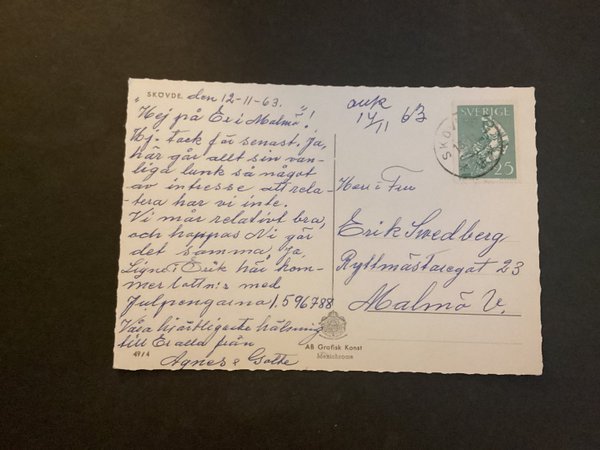 SKÖVDE. den 12-11-63.
"Hej på Er i Malmö"!
Hj. tack för senast. Ja,
här går allt sin van-
liga lunk så något
av intresse att rela-
tera har vi inte.
Vi mår relativt bra,
och hoppas Ni gör
det samma. Ja,
Signe i Erik här kom-
mer lottn:r med
Julpengarna 1.596788
Våra hjärtligaste hälsning
till Er alla från
Agnes & Gotte
49/4
ank
14/11 63
SVERIGE
25
SKÖV
Herr i Fru
Erik Swedberg
Ryttmästaregat 23
Malmö V.
AB Grafisk Konst